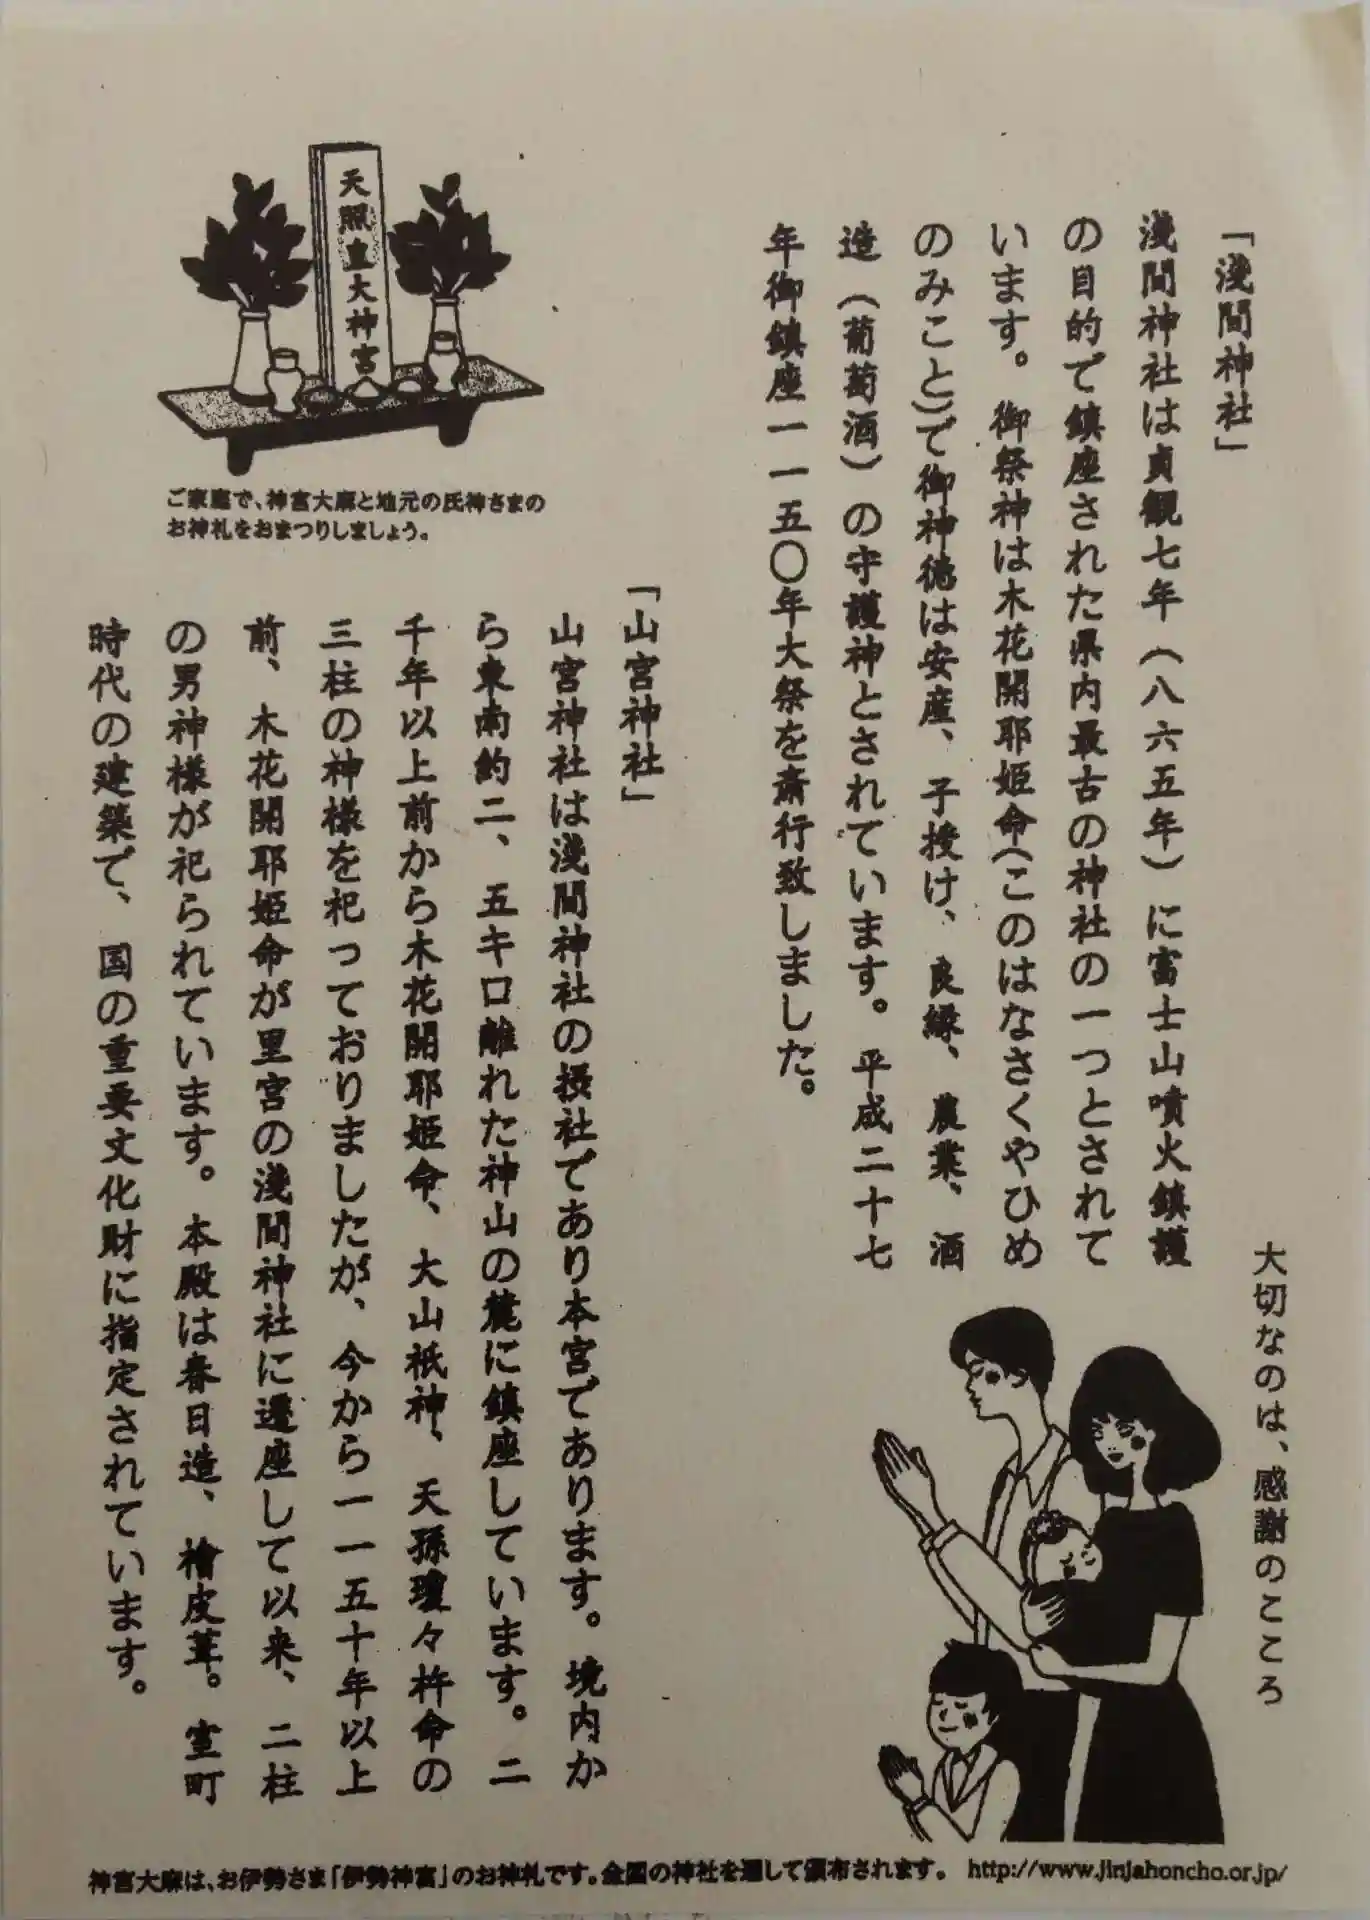 「淺間神社」
淺間神社は貞観七年（八六五年）に富士山噴火鎮護
の目的で鎮座された県内最古の神社の一つとされて
います。御祭神は木花開耶姫命(このはなさくやひめ
のみこと)で御神徳は安産、子授け、良縁、農業、酒
造（葡萄酒）の守護神とされています。平成二十七
年御鎮座一一五〇年大祭を斎行致しました。
天照皇大神宮
ご家庭で、神宮大麻と地元の氏神さまの
お神札をおまつりしましょう。
「山宮神社」
山宮神社は淺間神社の摂社であり本宮であります。境内か
ら東南約二、五キロ離れた神山の麓に鎮座しています。二
千年以上前から木花開耶姫命、大山祇神、天孫瓊々杵命の
三柱の神様を祀っておりましたが、今から一一五十年以上
前、木花開耶姫命が里宮の淺間神社に遷座して以来、二柱
の男神様が祀られています。本殿は春日造、檜皮葺。室町
時代の建築で、国の重要文化財に指定されています。
大切なのは、感謝のこころ
神宮大麻は、お伊勢さま「伊勢神宮」のお神札です。全国の神社を通して頒布されます。 http://www.jinjahoncho.or.jp/